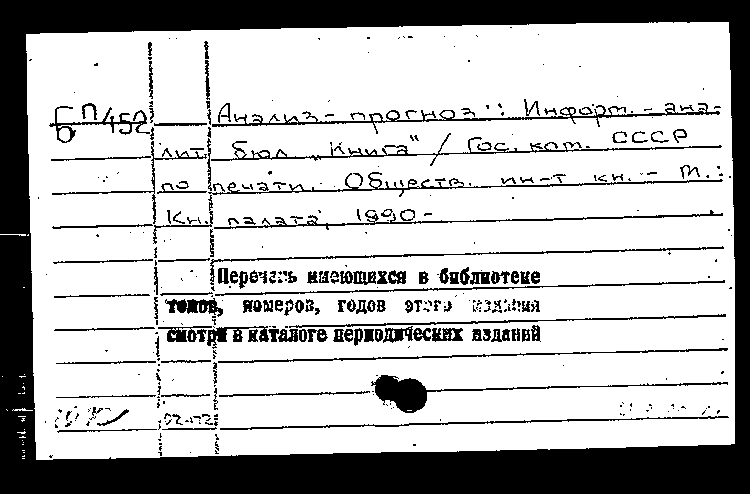 П452
Б
Анализ-прогноз: : Информ.-ана-
лит. бюл „Книга" / Гос. ком. СССР
по печати. Обществ. ин-т кн. - М.:
Кн. палата, 1990-
Перечень имеющихся в библиотеке
томов, номеров, годов этого издания
смотри в каталоге периодических изданий